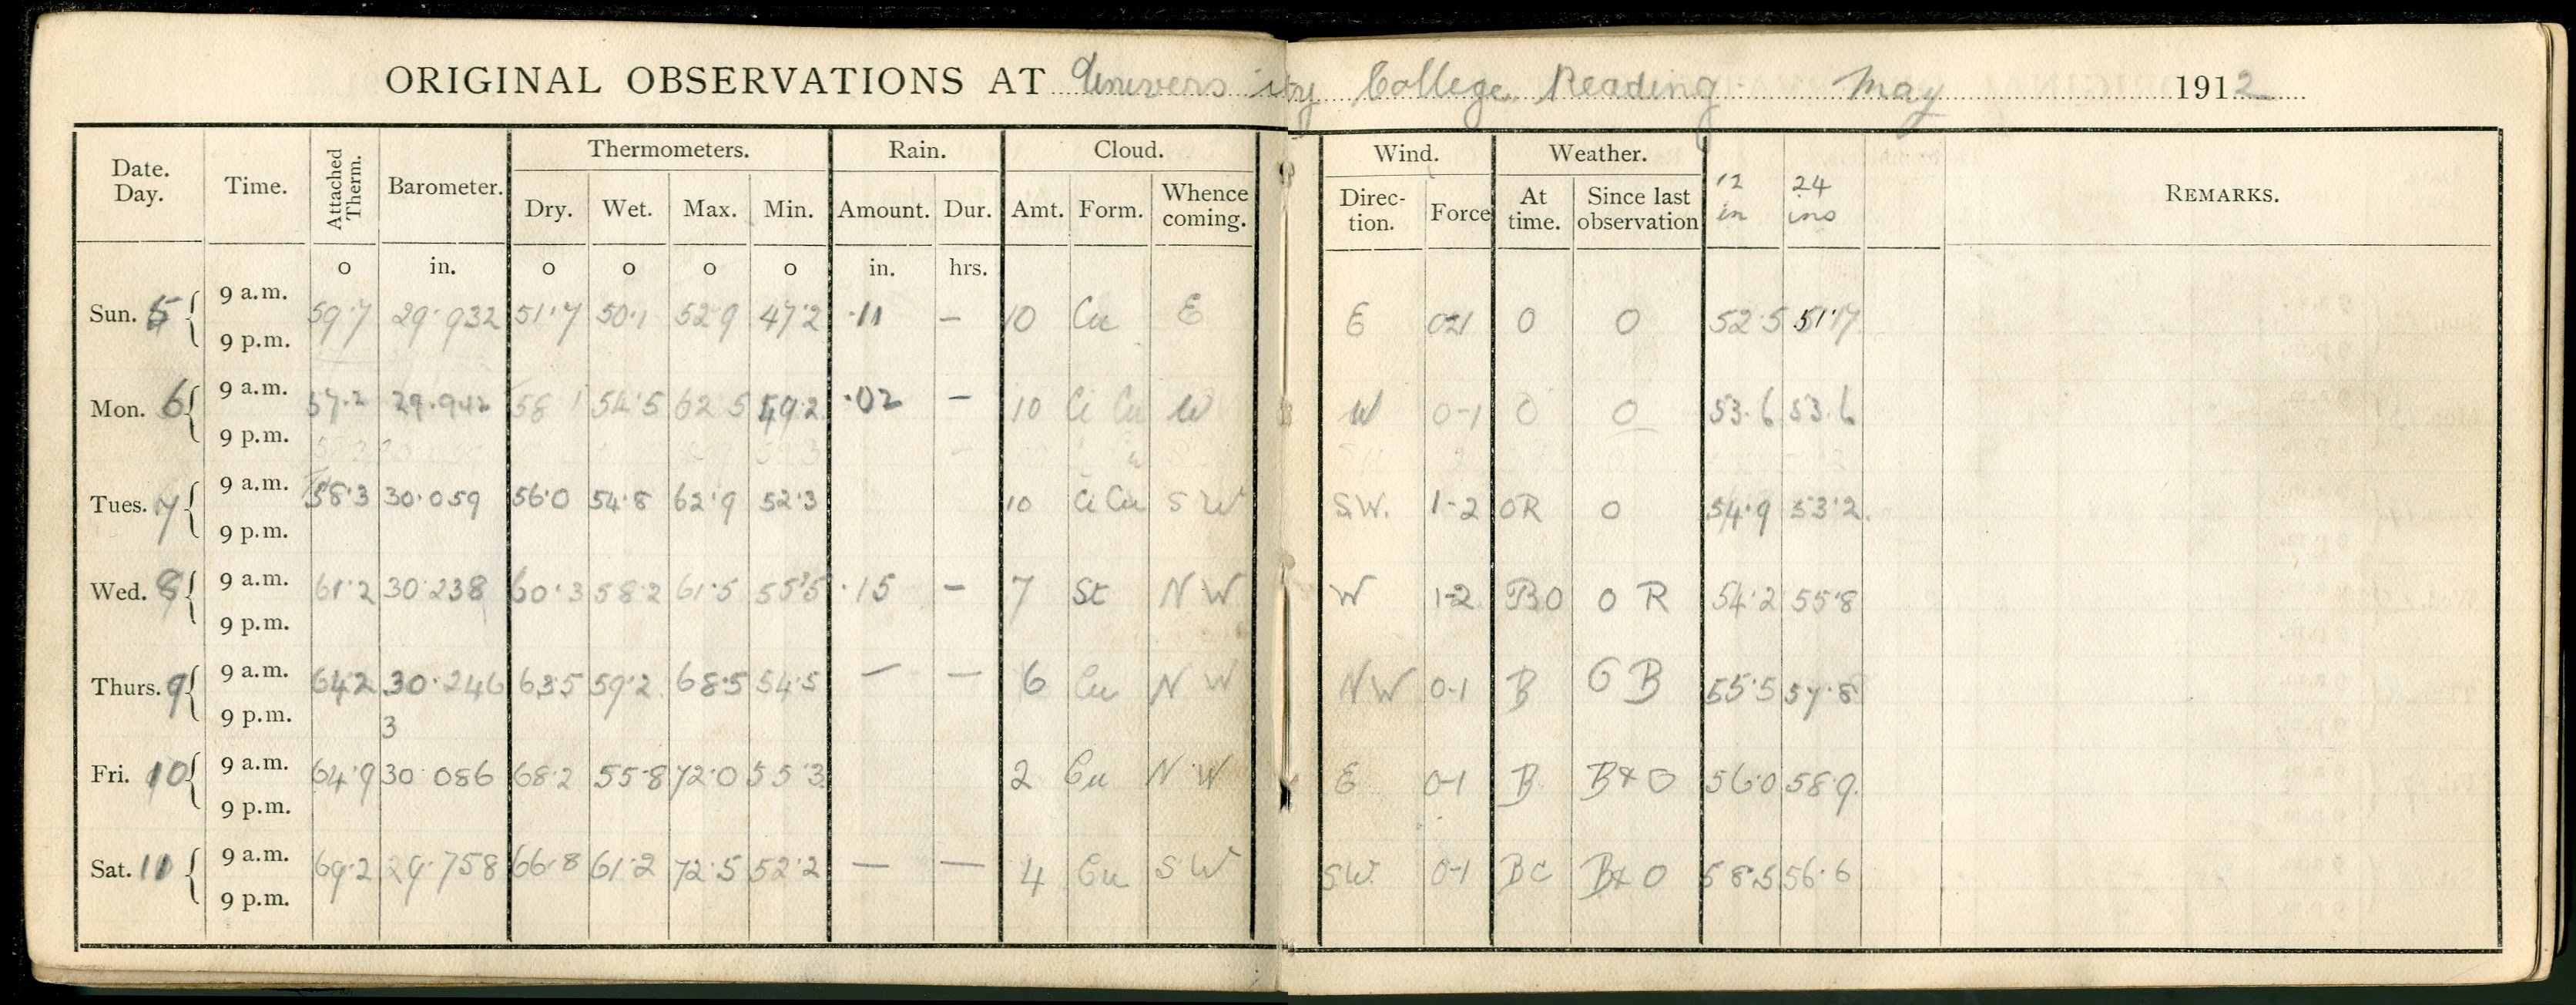 ORIGINAL OBSERVATIONS AT University College, Reading May 1912
Date. Day. Time. Attached Therm. Barometer. Thermometers. Rain. Cloud. Wind. Weather. 12 in 24 ins REMARKS.
Dry. Wet. Max. Min. Amount. Dur. Amt. Form. Whence coming. Direction. Force At time. Since last observation
o in. o o o o in. hrs.
9 a.m.
Sun. 5 59·7 29·932 51·7 50·1 52·9 47·2 ·11 — 10 Cu E E 0-1 O O 52·5 51·7
9 p.m.
9 a.m.
Mon. 6 57·2 29·942 58·1 54·5 62·5 49·2 ·02 — 10 Ci Cu W W 0-1 O O 53·6 53·6
9 p.m.
9 a.m.
Tues. 7 58·3 30·059 56·0 54·8 62·9 52·3 10 Ci Cu S W S.W. 1-2 OR O 54·9 53·2
9 p.m.
9 a.m.
Wed. 8 61·2 30·238 60·3 58·2 61·5 55·5 ·15 — 7 St N W W 1-2 BO O R 54·2 55·8
9 p.m.
9 a.m.
Thurs. 9 64·2 30·246 63·5 59·2 68·5 54·5 — — 6 Cu N W N W 0-1 B O B 55·5 57·8
9 p.m. 3
9 a.m.
Fri. 10 64·9 30 086 68·2 55·8 72·0 55·3 2 Cu N W E 0-1 B B & O 56·0 58·9
9 p.m.
9 a.m.
Sat. 11 69·2 29·758 66·8 61·2 72·5 52·2 — — 4 Cu S W S.W. 0-1 BC B & O 58·5 56·6
9 p.m.